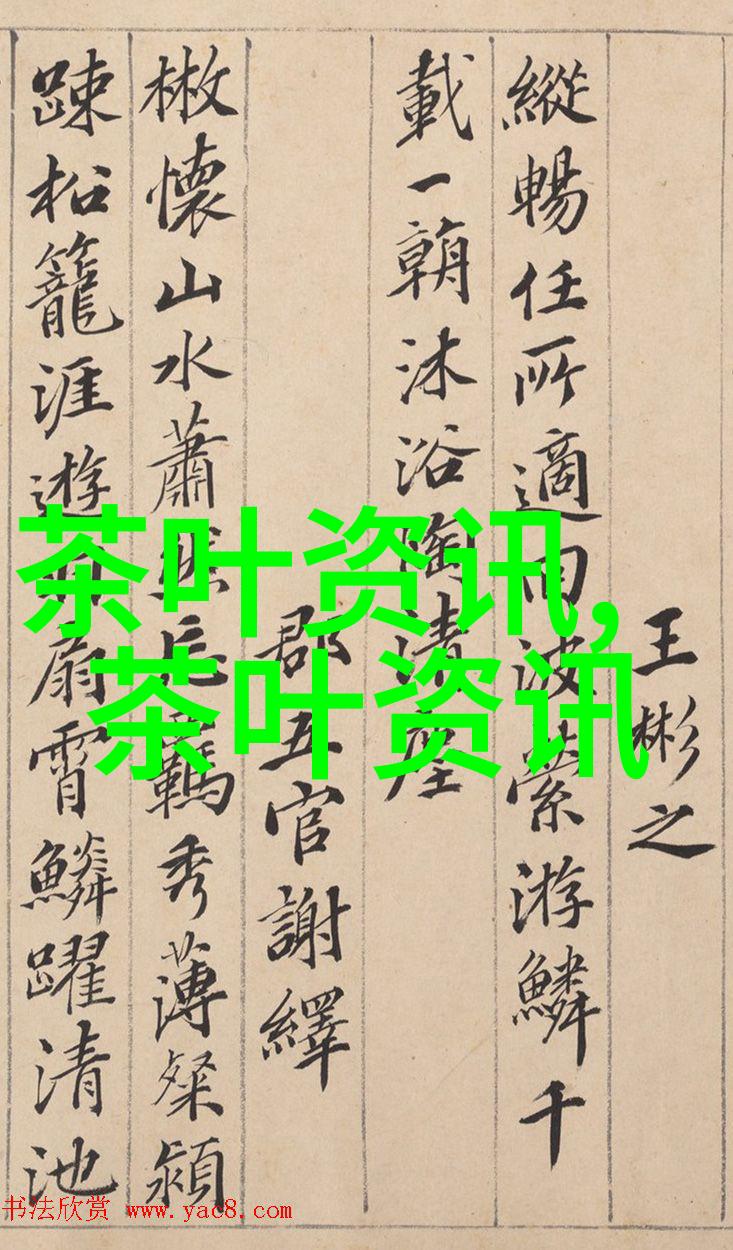 王彬之
縱暢任所適回波縈游鱗千
載一朝沐浴陶清塵
郡五官謝繹
散懷山水蕭然忘羈秀薄粲穎
踈松籠涯遊羽扇霄鱗躍清池
茶叶资讯,
茶叶资讯
书法欣赏 www.yac8.com